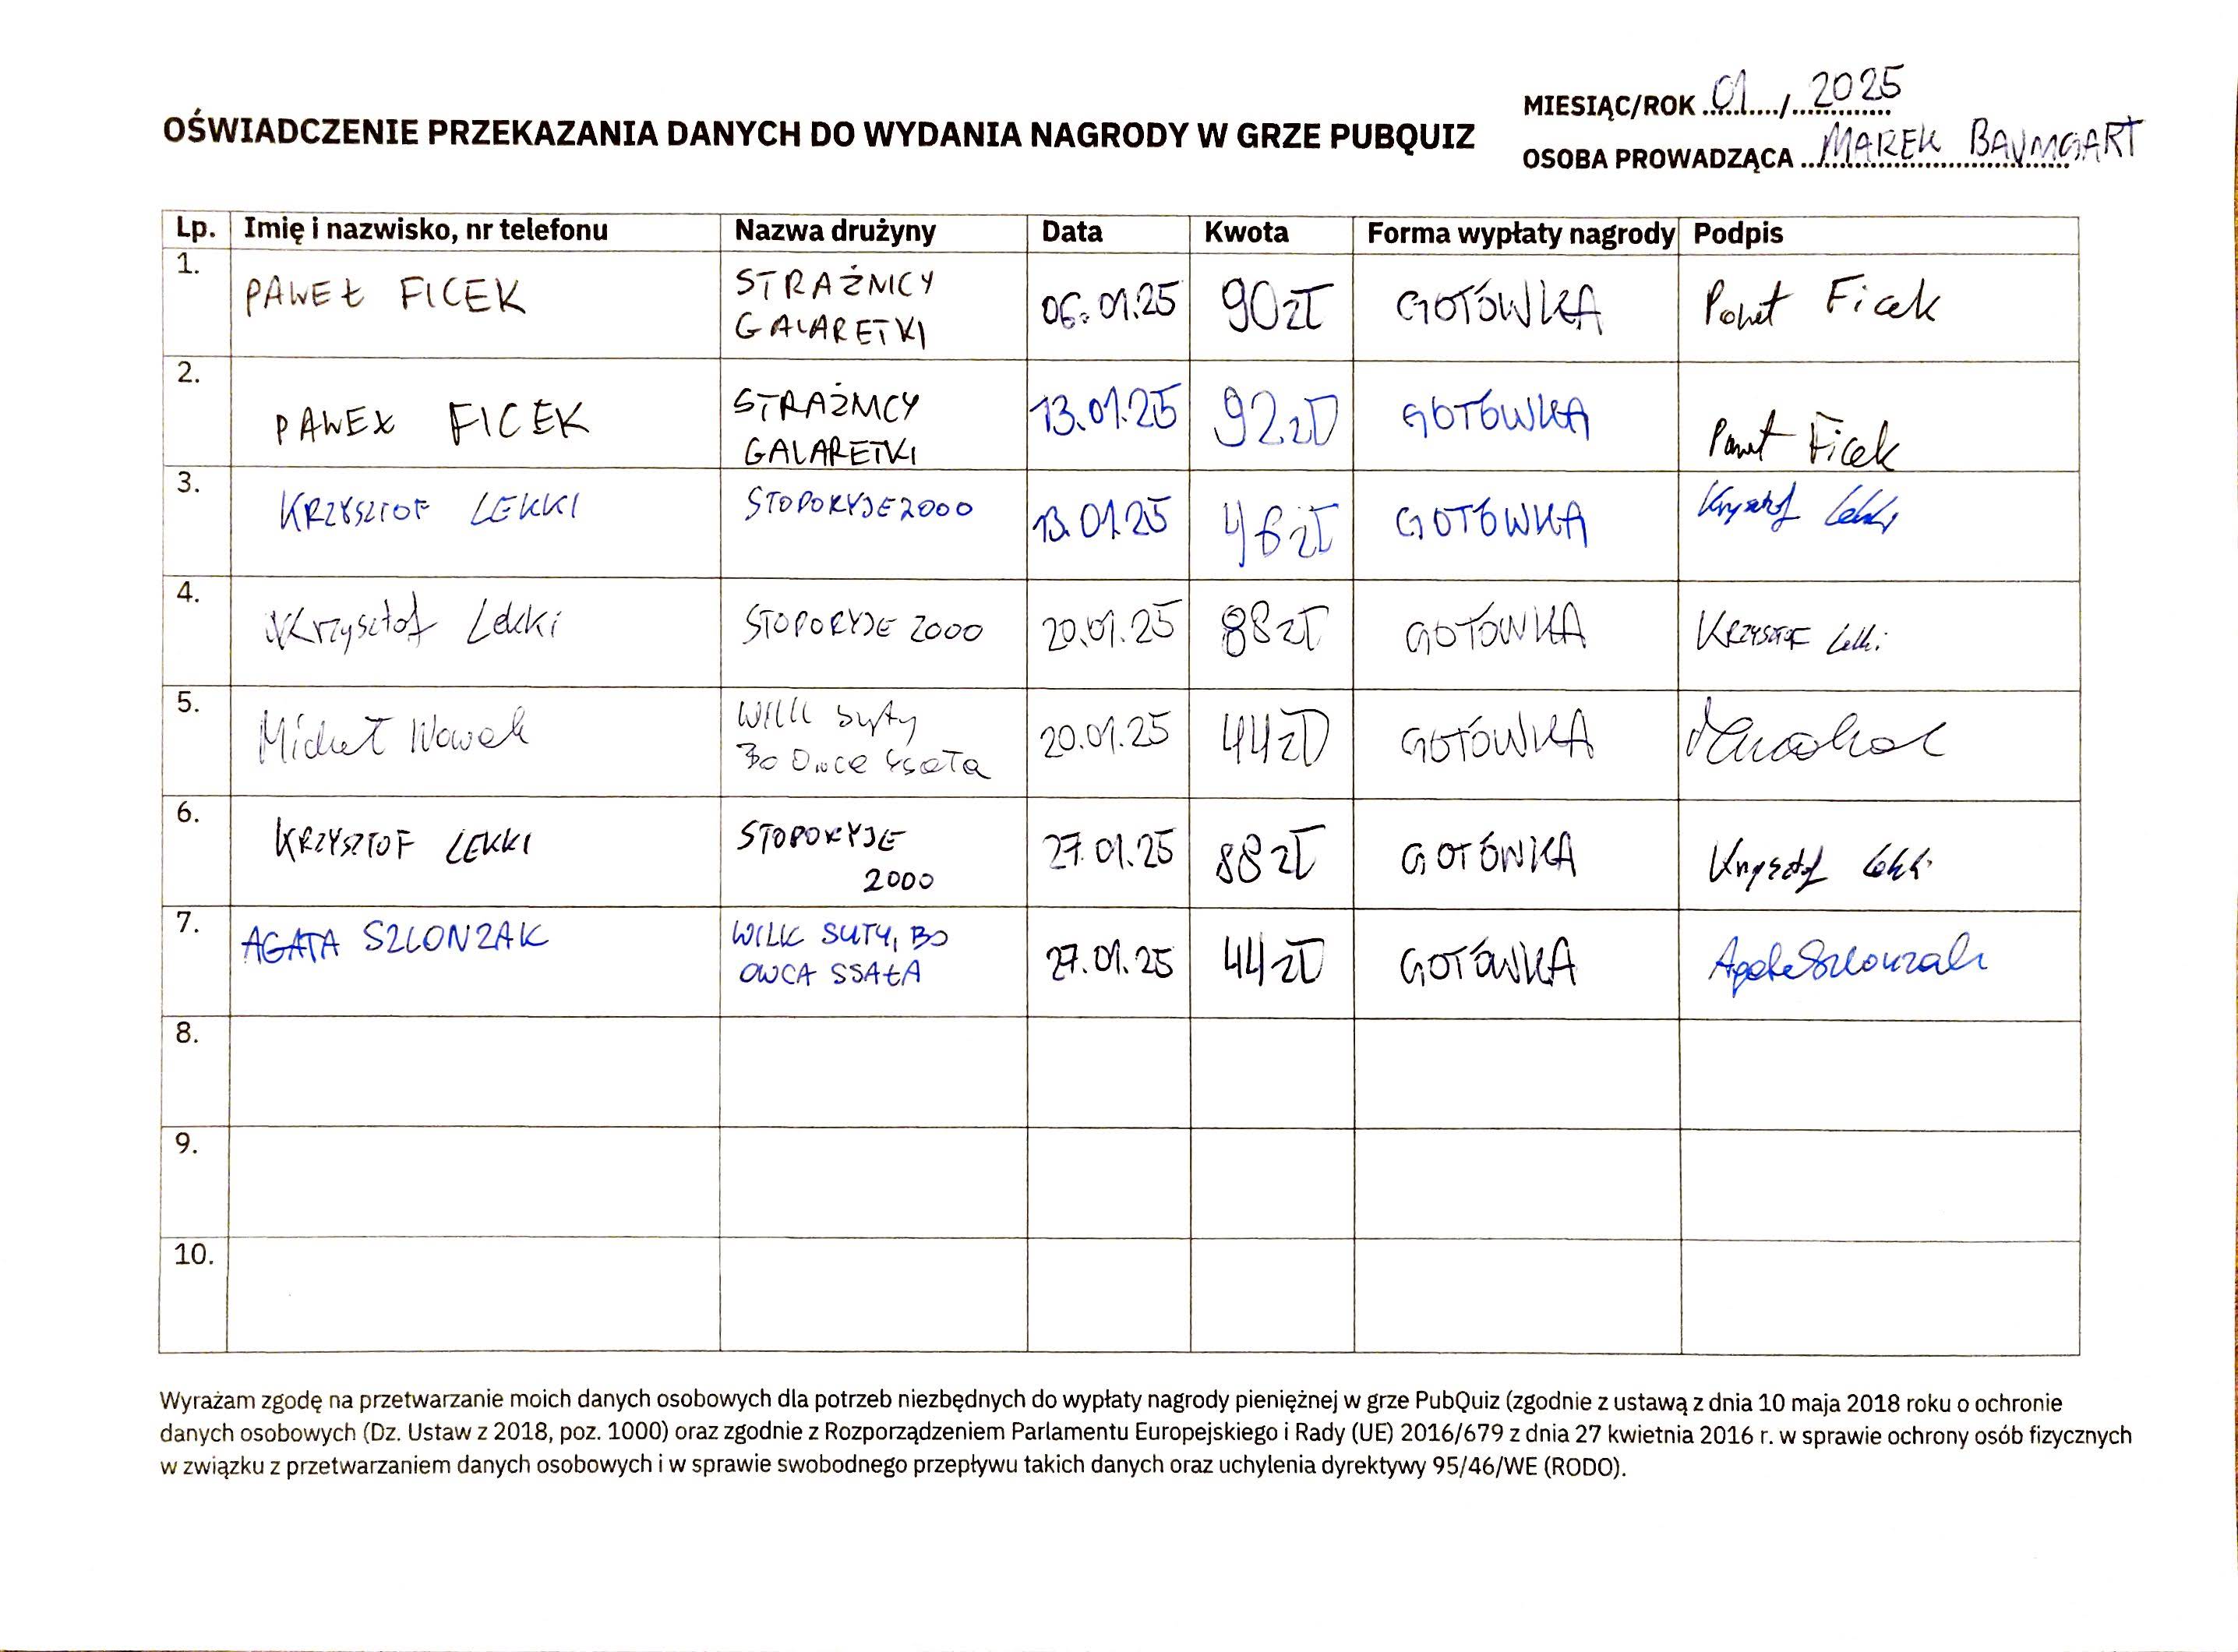 MIESIĄC/ROK 01 / 2025
OŚWIADCZENIE PRZEKAZANIA DANYCH DO WYDANIA NAGRODY W GRZE PUBQUIZ
OSOBA PROWADZĄCA MAREK BAUMGART
Lp. Imię i nazwisko, nr telefonu Nazwa drużyny Data Kwota Forma wypłaty nagrody Podpis
1. PAWEŁ FICEK STRAŻNICY GALARETKI 06.01.25 90zł GOTÓWKA Paweł Ficek
2. PAWEŁ FICEK STRAŻNICY GALARETKI 13.01.25 92zł GOTÓWKA Paweł Ficek
3. KRZYSZTOF LEKKI STOPORYJE2000 13.01.25 46zł GOTÓWKA Krzysztof Lekki
4. Krzysztof Lekki STOPORYJE 2000 20.01.25 88zł GOTÓWKA KRZYSZTOF Lekki
5. Michał Nowak WILK syty Bo Owce ssała 20.01.25 44zł GOTÓWKA
6. KRZYSZTOF LEKKI STOPORYJE 2000 27.01.25 88zł GOTÓWKA Krzysztof Lekki
7. AGATA SZLONZAK WILK SUTY, BO OWCA SSAŁA 27.01.25 44zł GOTÓWKA Agata Szlonzak
8.
9.
10.
Wyrażam zgodę na przetwarzanie moich danych osobowych dla potrzeb niezbędnych do wypłaty nagrody pieniężnej w grze PubQuiz (zgodnie z ustawą z dnia 10 maja 2018 roku o ochronie
danych osobowych (Dz. Ustaw z 2018, poz. 1000) oraz zgodnie z Rozporządzeniem Parlamentu Europejskiego i Rady (UE) 2016/679 z dnia 27 kwietnia 2016 r. w sprawie ochrony osób fizycznych
w związku z przetwarzaniem danych osobowych i w sprawie swobodnego przepływu takich danych oraz uchylenia dyrektywy 95/46/WE (RODO).